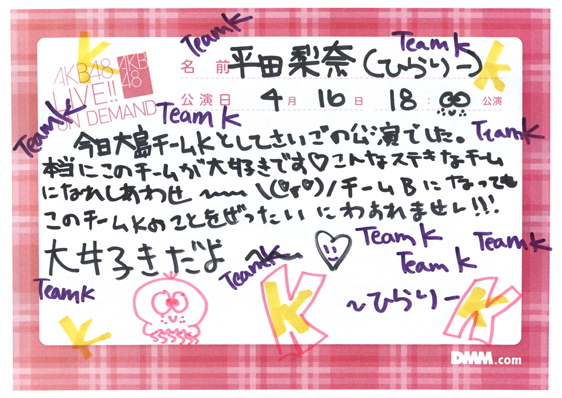 Team K
Team K
名前 平田梨奈(ひらりー)
AKB48
LIVE!!
ON DEMAND
AKB
48
公演日 4月16日 18:00公演
Team K
Team K
Team K
今日大島チームKとしてさいごの公演でした。
本当にこのチームが大好きです♡こんなステキなチーム
になれしあわせ〜〜\(♡r♡)/チームBになっても
このチームKのことをぜったいにわあれませレ!!!
大好きだよ〜
Team K
Team K
Team K
Team K
Team K
K
K
K
K
K
K
〜ひらりー
DMM.com